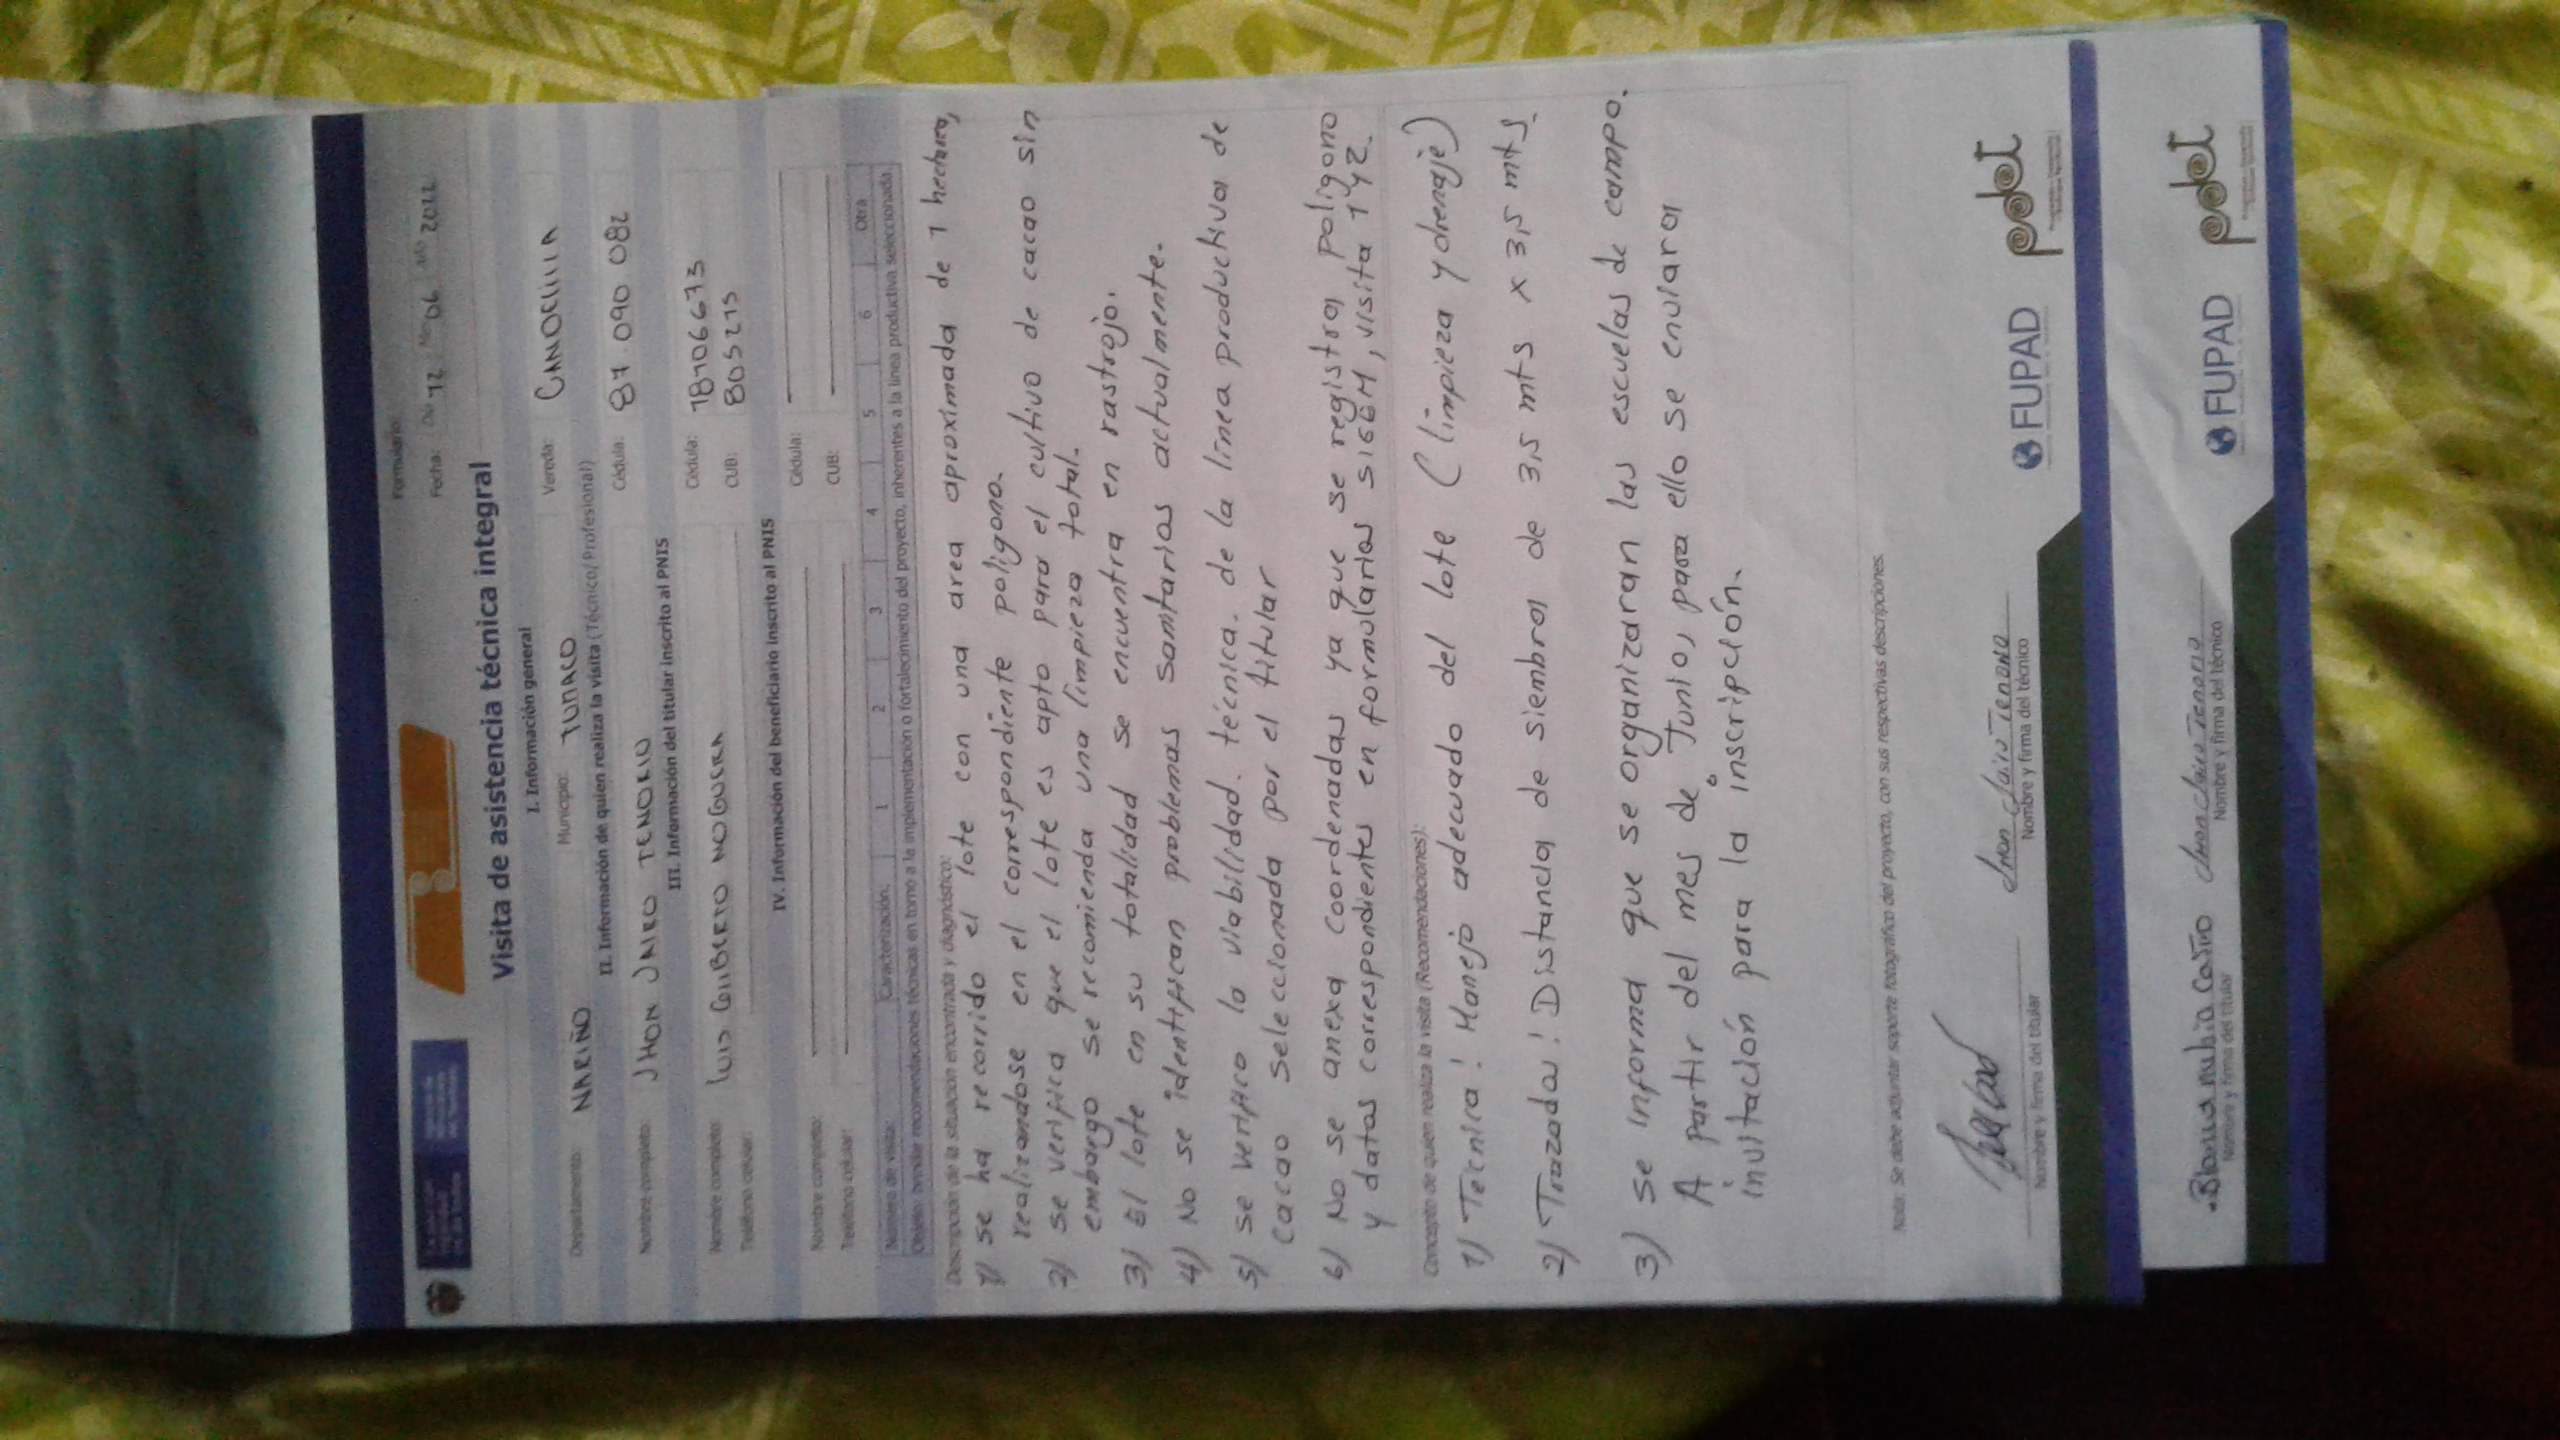 Formulario:
Fecha: Día 12 Mes 06 Año 2022
Visita de asistencia técnica integral
I. Información general
Departamento: NARIÑO Municipio: TUMACO Vereda: CANDELILLA
II. Información de quien realiza la visita (Técnico/Profesional)
Nombre completo: JHON JAIRO TENORIO Cédula: 87.090.082
III. Información del titular inscrito al PNIS
Nombre completo: LUIS GILIBERTO NOGUERA Cédula: 18106673
Teléfono celular: CUB: 805215
IV. Información del beneficiario inscrito al PNIS
Nombre completo: Cédula:
Teléfono celular: CUB:
Número de visita: Caracterización: 1 2 3 4 5 6 Otra
Objeto: brindar recomendaciones técnicas en torno a la implementación o fortalecimiento del proyecto, inherentes a la línea productiva seleccionada
Descripción de la situación encontrada y diagnóstico:
1) se ha recorrido el lote con una area aproximada de 1 hectarea,
realizandose en el correspondiente poligono.
2) se verifica que el lote es apto para el cultivo de cacao sin
embargo se recomienda una limpieza total.
3) El lote en su totalidad se encuentra en rastrojo.
4) No se identifican problemas sanitarios actualmente.
5) se verifico la viabilidad. técnica. de la línea productiva de
cacao seleccionada por el titular
6) No se anexa coordenadas ya que se registra poligono
y datos correspondientes en formularios SIGEM, visita 1 y 2.
Concepto de quien realiza la visita (Recomendaciones):
1) Tecnica! Manejo adecuado del lote (limpieza y drenaje)
2) Trazado! Distancia de siembra de 3,5 mts x 3,5 mts.
3) se informa que se organizaran las escuelas de campo.
A partir del mes de Junio, para ello se enviara
invitación para la inscripción.
Nota: Se debe adjuntar soporte fotográfico del proyecto, con sus respectivas descripciones.
Jhon Jairo Tenorio
Nombre y firma del titular Nombre y firma del técnico
FUPAD pdet
Blanca nubia Castro Jhon Jairo Tenorio
Nombre y firma del titular Nombre y firma del técnico
FUPAD pdet